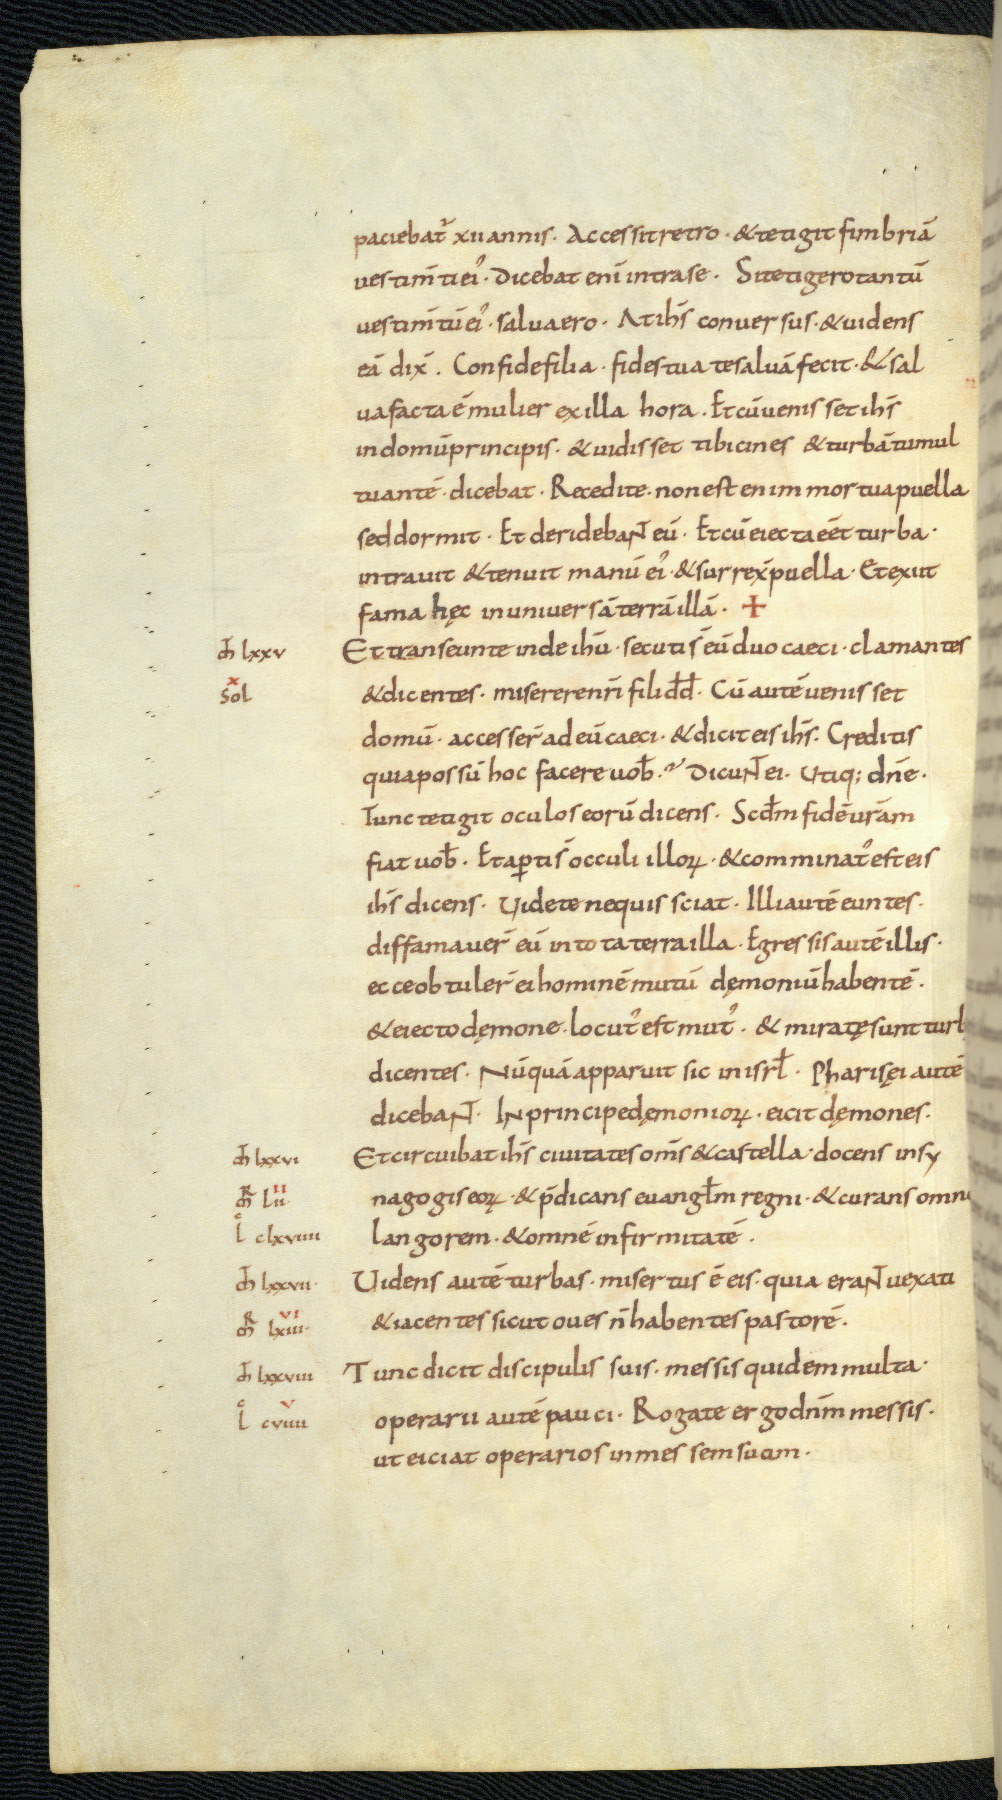 paciebat᷑ xii annis. Accessit retro · & tetigit fimbriā
vestim̄ti ei᾿ · Dicebat eni intra se · Si tetigero tantū
vestim̄tū ei᾿ · salva ero · At ihs̄ conversus · & videns
eā dix̄ . Confide filia · fides tua te salvā fecit · & sal
va facta ē mulier ex illa hora . Et cū venisset ihs̄
in domū principis · & vidisset tibicines & turbā tumul
tuantē · dicebat · Recedite · non est enim mortua puella
sed dormit · Et deridebaNT eū · Et cū eiecta eēt turba ·
intravit & tenuit manū ei᾿ · & surrex̄ puella · Et exiit
fama hęc in universā terrā illā · +
m̄ lxxv Et transeunte inde ihū · secuti s̄ eū duo caeci · clamantes
x
sol & dicentes · miserere nr̄i fili dd̄ · Cū autē venisset
domū · accesser̄ ad eū caeci · & dicit eis ihs̄ · Creditis
quia possū hoc facere vob̄ · DicuNT ei · Utiq; dn̄e ·
Tunc tetigit oculos eorū dicens · Scd̄m fidē vr̄am
fiat vob̄ · Et apti s̄ occuli illoꝝ · & comminat᾿ est eis
ihs̄ dicens · Videte nequis sciat · Illi autē euntes ·
diffamaver̄ eū in tota terra illa · Egressis autē illis ·
ecce obtuler̄ ei hominē mutū dęmoniū habentē ·
& eiecto dęmone · locut᾿ est mut᾿ · & miratę sunt turb
dicentes · Nūquā apparuit sic in isrl̄ · Pharisęi autē
dicebaNT · IN principe dęmonioꝝ · eicit dęmones ·
m̄ lxxvi Et circuibat ihs̄ civitates oms̄ & castella · docens in sy
R
m̄ lii
ii nagogis eoꝝ · & p̄dicans evangl̄m regni · & curans omn
l clxviiii langorem · & omnē infirmitatē ·
m̄ lxxvii Videns autē turbas · misertus ē eis · quia eraNT vexati
R
m̄ lxiii
vi & iacentes sicut oves n̄ habentes pastorē ·
m̄ lxxviii Tunc dicit discipulis suis · messis quidem multa ·
v
l cviiii operarii autē pauci · Rogate ergo dn̄m messis ·
ut eiciat operarios in messem suam ·